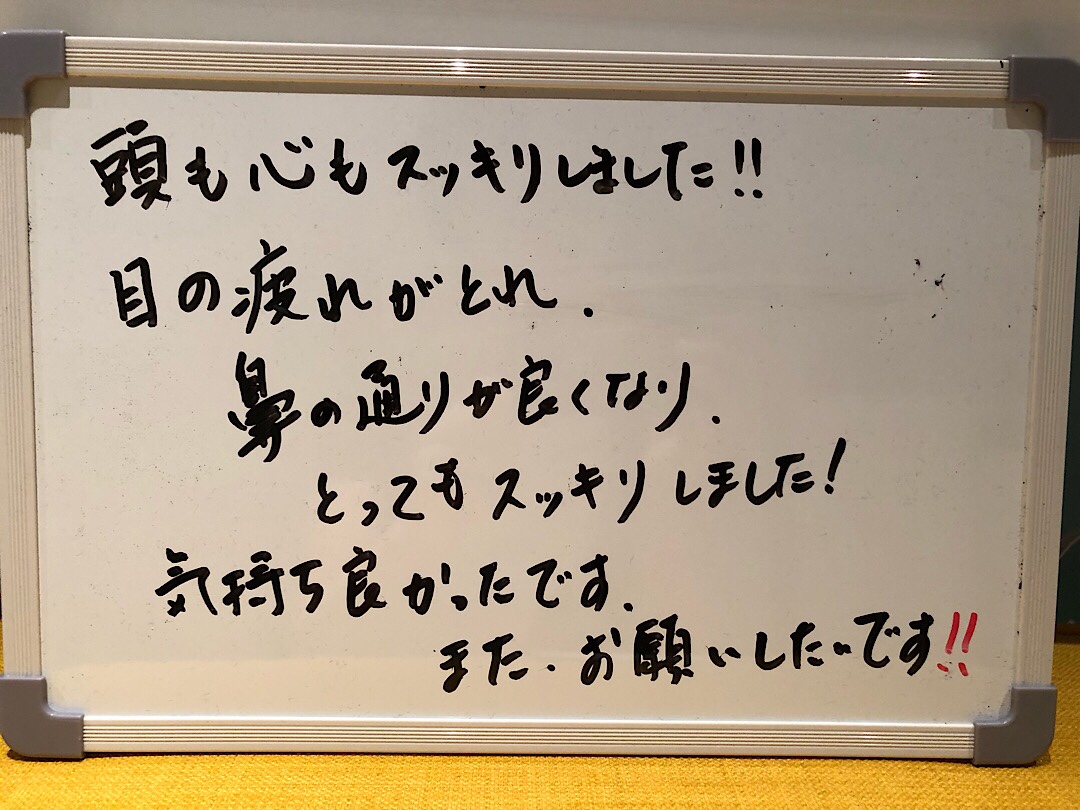 頭も心もスッキリしました!!
目の疲れがとれ.
鼻の通りが良くなり.
とってもスッキリしました!
気持ち良かったです.
また.お願いしたいです!!